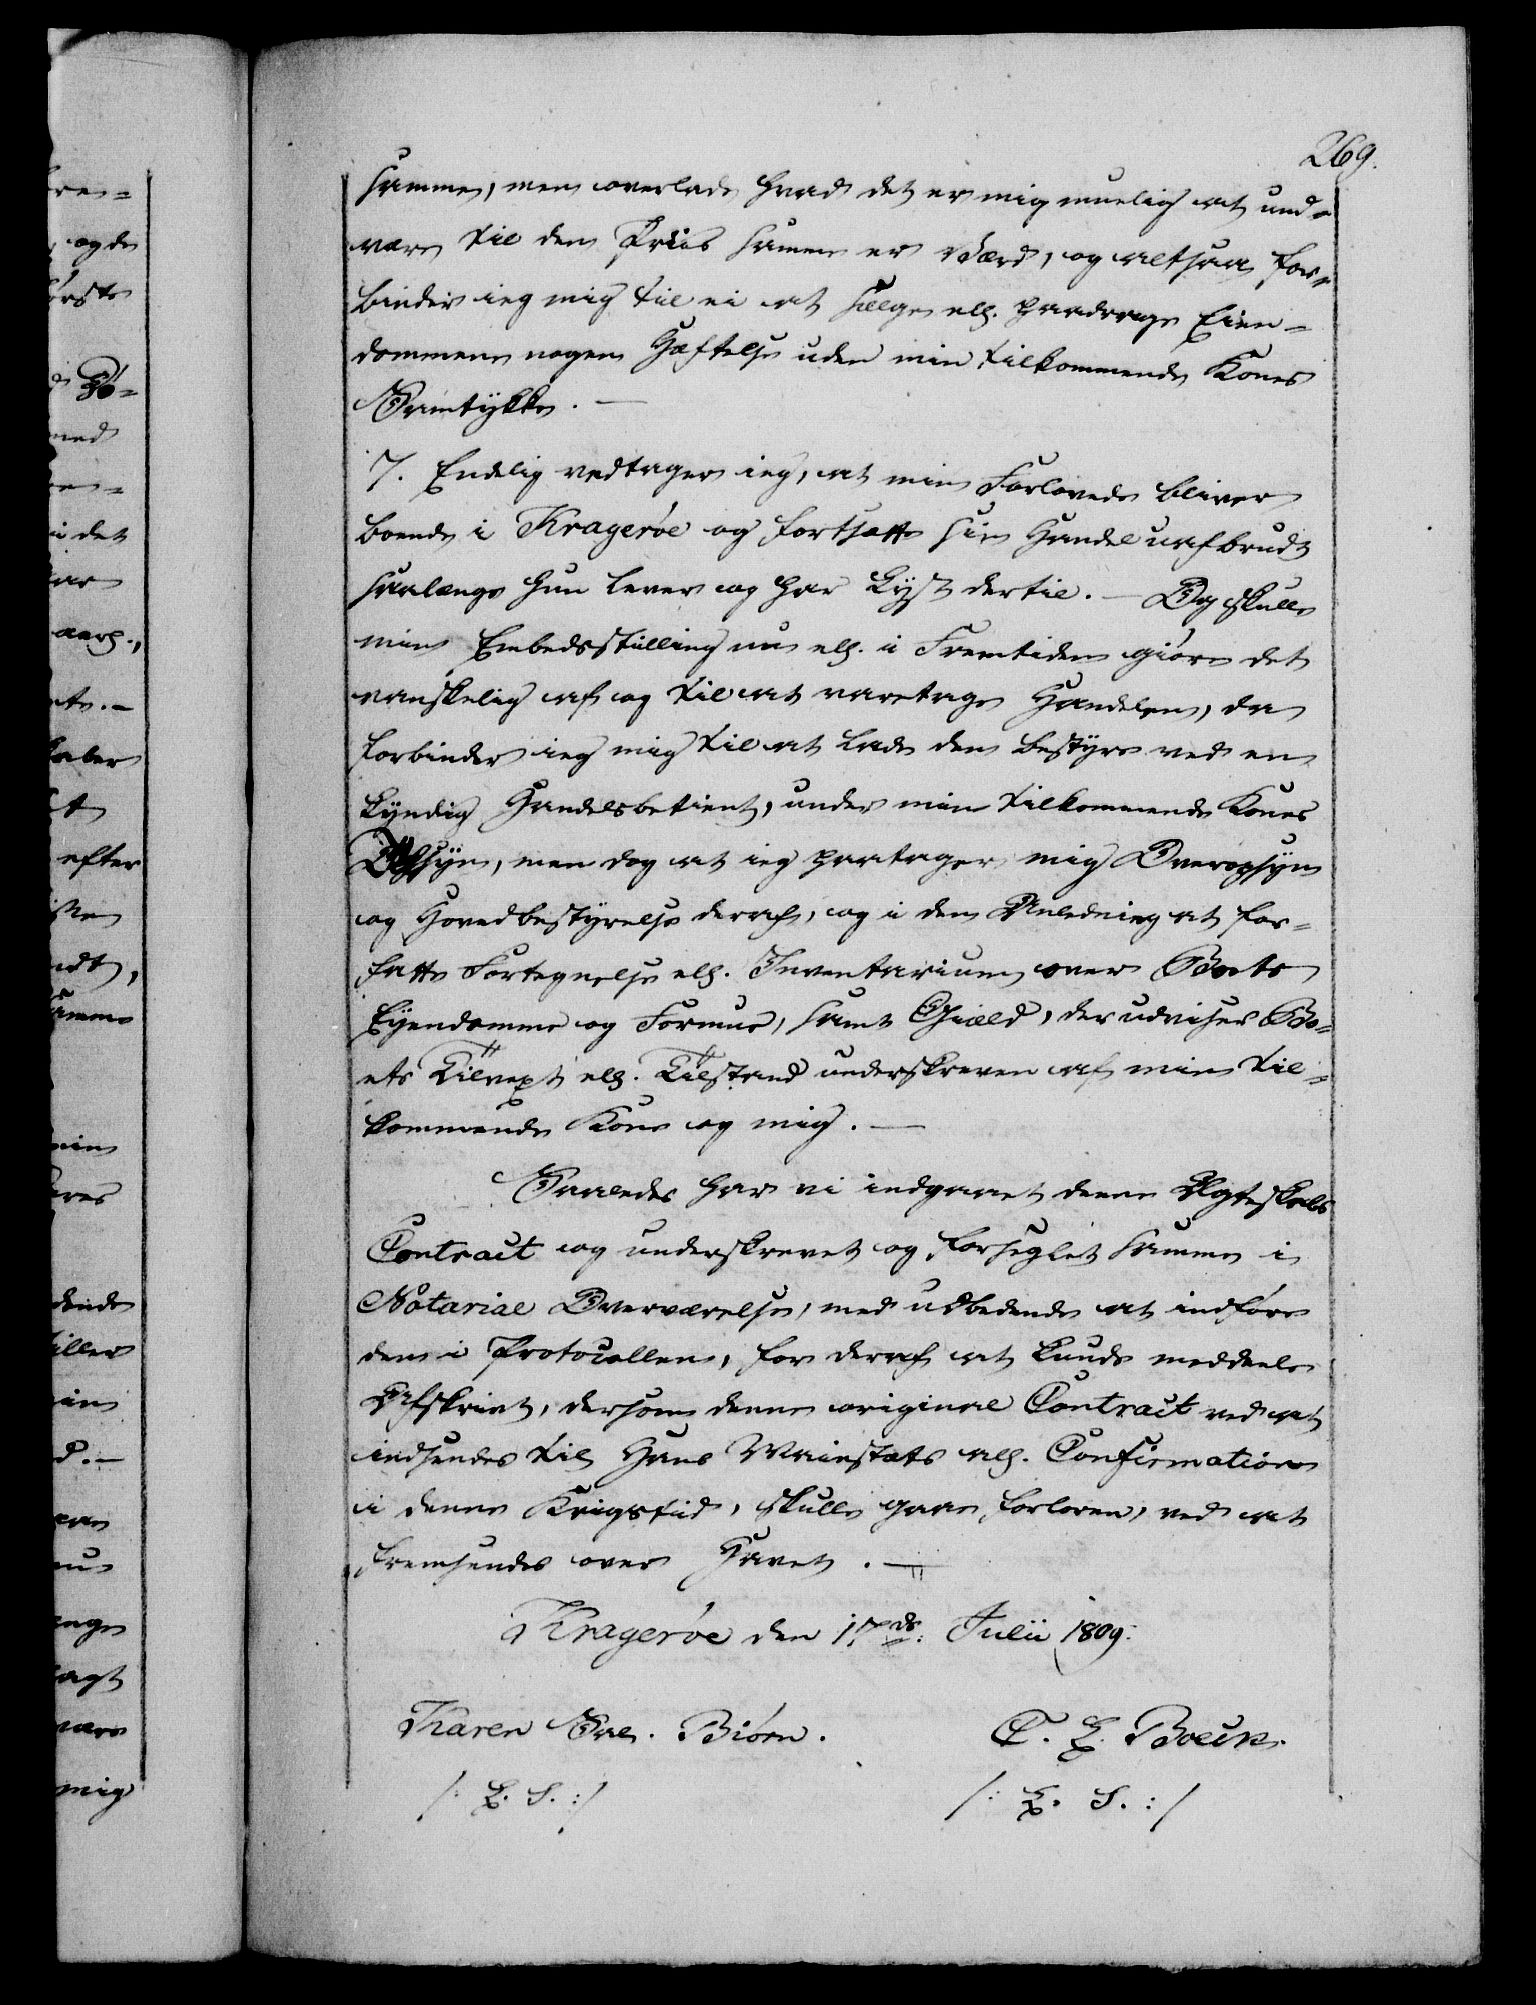 269.
samme, men overlade hvad det er mig mueligt at und-
være til den Priis samme er værd, og altsaa for-
binder ieg mig til ei at sælge ell. paadrage Eien-
dommene nogen Hæftelse uden min tilkommende Kones
Samtykke. —
7. Endelig vedtager ieg, at min Forlovede bliver
boende i Kragerøe og fortsætte sin Handel uafbrudt
saalænge hun lever og har Lyst dertil. — Og skulle
min Embedsstilling nu ell. i Fremtiden giøre det
vanskelig af og til at varetage Handelen, da
forbinder ieg mig til at lade den bestyre ved en
kyndig Handelsbetient, under min tilkommende Kones
Opsyn, men dog at ieg paatager mig Overopsyn
og Hovedbestyrelse deraf, og i den Anledning at for-
fatte Fortegnelse ell. Inventarium over Boets
Eyendomme og Formue, samt Gield, der udviser Bo-
ets Tilvext ell. Tilstand underskreven af min til-
kommende Kone og mig. —
Saaledes har vi indgaaet denne Ægteskabs
Contract og underskrevet og forseglet samme i
Notarial Overværelse, med udbedende at indføre
den i Protocollen, for deraf at kunde meddeele
Afskrivt, dersom denne original Contract ved at
indsendes til Hans Maiestæts all. Confirmation
i denne Krigstid, skulle gaae forloren, ved at
fremsendes over Havet. —
Kragerøe den 17de: Julii 1809.
Karen Biörn. C. E. Boeck.
/: L. S. :/ /: L. S. :/
og de
med
i det
efter
mig